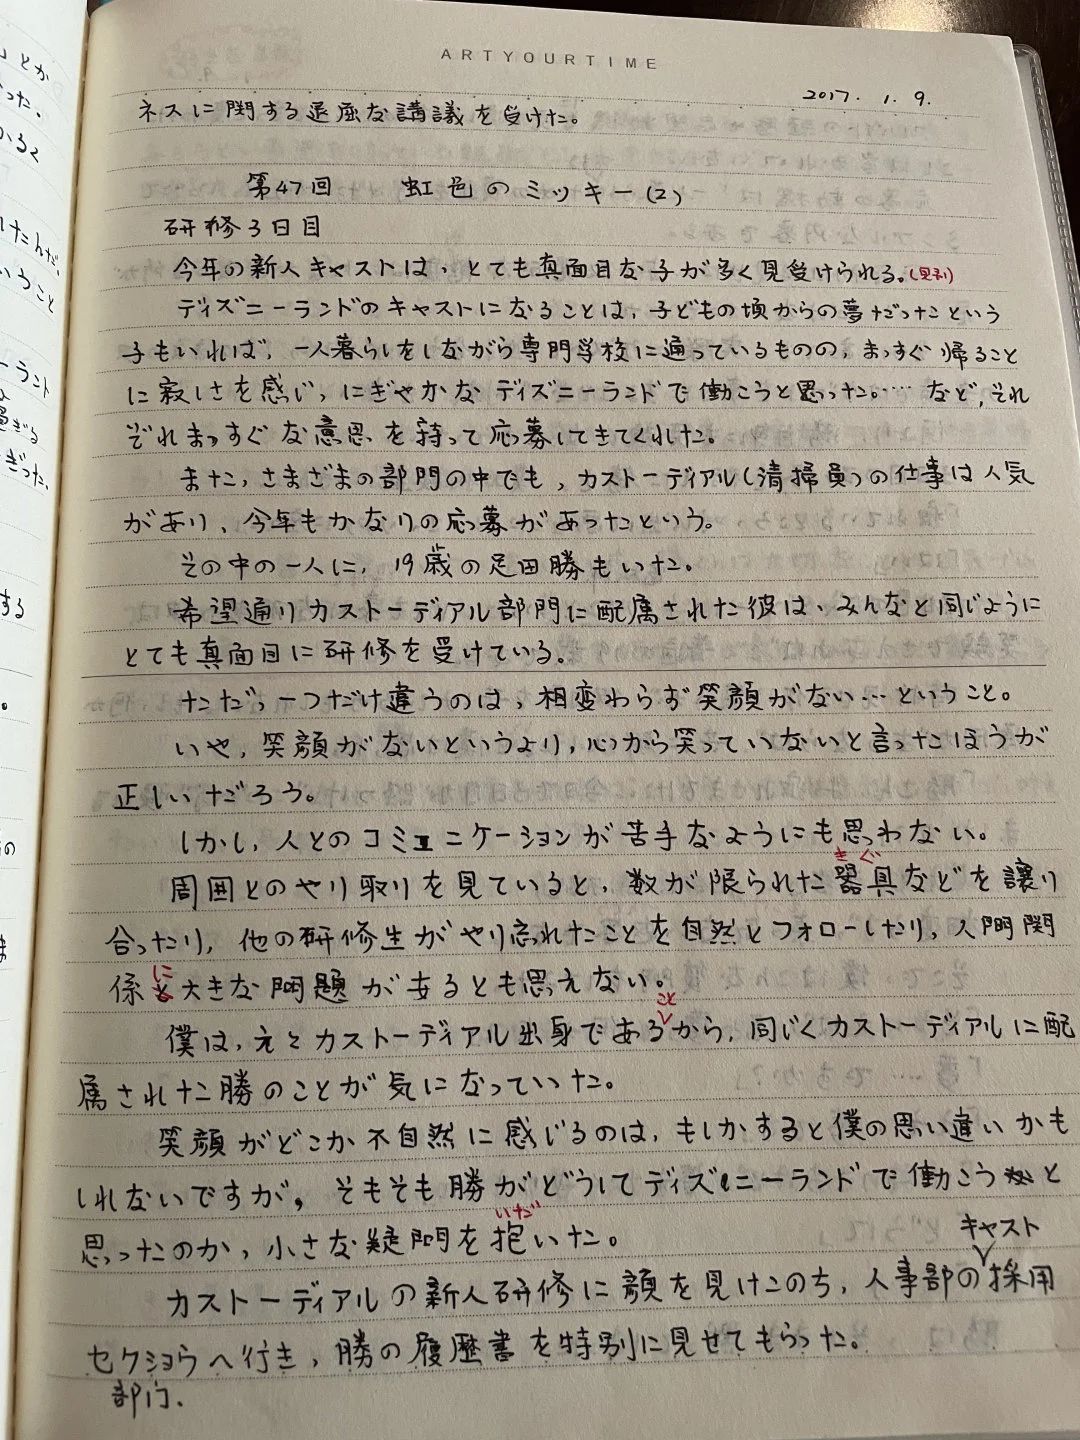 ARTYOURTIME
2017. 1. 9.
ネスに関する退屈な講議を受けた。
第47回 虹色のミッキー(2)
研修3日目
今年の新人キャストは、とても真面目な子が多く見受けられる。(見到)
ディズニーランドのキャストになることは、子どもの頃からの夢だったという
子もいれば、一人暮らしをしながら専門学校に通っているものの、まっすぐ帰ること
に寂しさを感じ、にぎやかなディズニーランドで働こうと思った。…… など、それ
ぞれまっすぐな意思を持って応募してきてくれた。
また、さまざまの部門の中でも、カストーディアル(清掃員)の仕事は人気
があり、今年もかなりの応募があったという。
その中の一人に、19歳の足田勝もいた。
希望通りカストーディアル部門に配属された彼は、みんなと同じように
とても真面目に研修を受けている。
ただ、一つだけ違うのは、相変わらず笑顔がない…ということ。
いや、笑顔がないというより、心から笑っていないと言ったほうが
正しいだろう。
しかし、人とのコミュニケーションが苦手なようにも思わない。
きぐ
周囲とのやり取りを見ていると、数が限られた器具などを譲り
合ったり、他の研修生がやり忘れたことを自然とフォローしたり、人間関
に
係と大きな問題があるとも思えない。
こと
僕は、元々カストーディアル出身であるから、同じくカストーディアルに配
属された勝のことが気になっていた。
笑顔がどこか不自然に感じるのは、もしかすると僕の思い違いかも
しれないですが。そもそも勝がどうしてディズニーランドで働こうと
いだ
思ったのか、小さな疑問を抱いた。
キャスト
カストーディアルの新人研修に顔を見けこのち、人事部の採用
セクショウへ行き、勝の履歴書を特別に見せてもらった。
部门.